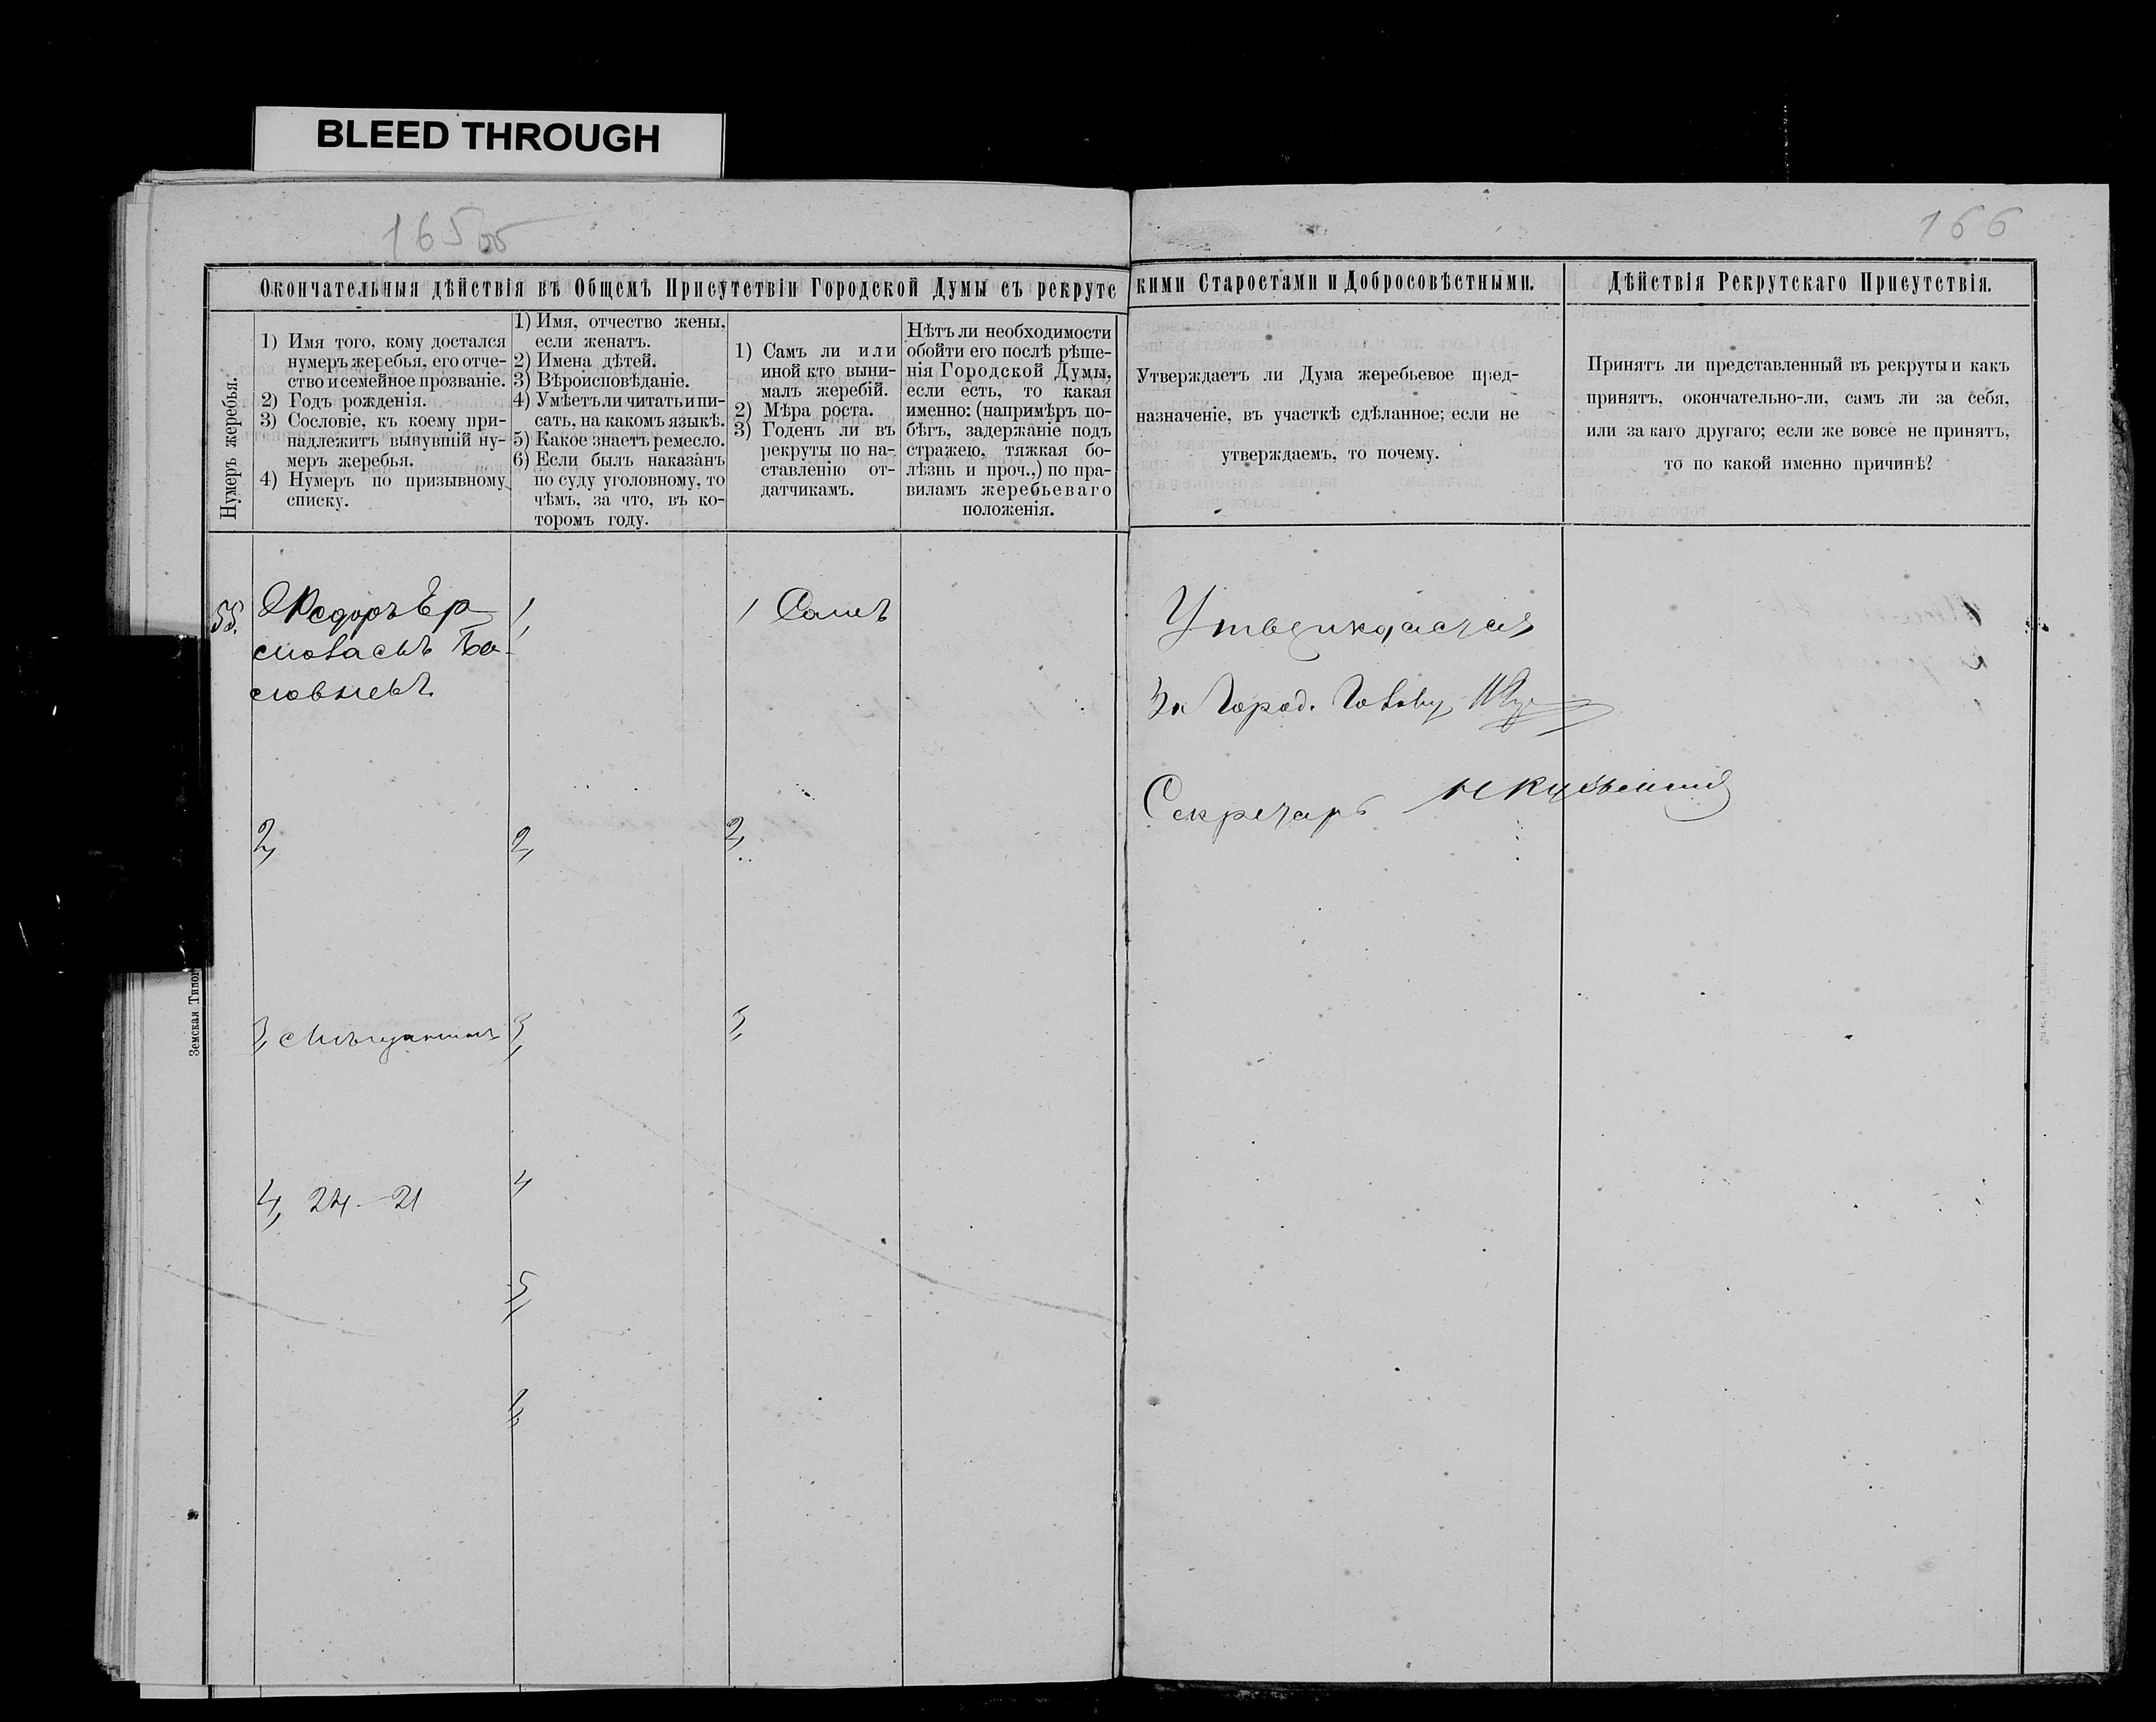 BLEED THROUGH
165 об
166
Окончательныя дѣйствія въ Общемъ Присутствіи Городской Думы съ рекрутс
кими Старостами и Добросовѣстными.
Дѣйствія Рекрутскаго Присутствія.
Нумеръ жеребья.
1) Имя того, кому достался
нумеръ жеребья, его отче-
ство и семейное прозваніе.
2) Годъ рожденія.
3) Сословіе, къ коему при-
надлежитъ вынувшій ну-
меръ жеребья.
4) Нумеръ по призывному
списку.
1) Имя, отчество жены,
если женатъ.
2) Имена дѣтей.
3) Вѣроисповѣданіе.
4) Умѣетъ ли читать и пи-
сать, на какомъ языкѣ.
5) Какое знаетъ ремесло.
6) Если былъ наказанъ
по суду уголовному, то
чѣмъ, за что, въ ко-
торомъ году.
1) Самъ ли или
иной кто выни-
малъ жеребій.
2) Мѣра роста.
3) Годенъ ли въ
рекруты по на-
ставленію от-
датчикамъ.
Нѣтъ ли необходимости
обойти его послѣ рѣше-
нія Городской Думы,
если есть, то какая
именно: (напримѣръ по-
бѣгъ, задержаніе подъ
стражею, тяжкая бо-
лѣзнь и проч.,) по пра-
виламъ жеребьеваго
положенія.
Утверждаетъ ли Дума жеребьевое пред-
назначеніе, въ участкѣ сдѣланное; если не
утверждаемъ, то почему.
Принятъ ли представленный въ рекруты и какъ
принятъ, окончательно-ли, самъ ли за себя,
или за каго другаго; если же вовсе не принятъ,
то по какой именно причинѣ?
55.
Федоръ Ер
2,
3, Мѣщанинъ
4, 24-21
1,
2,
3,
4
5,
1 Самъ
2,
3,
Утверждается
За Город. Голову
Секретарь
Земская Типог